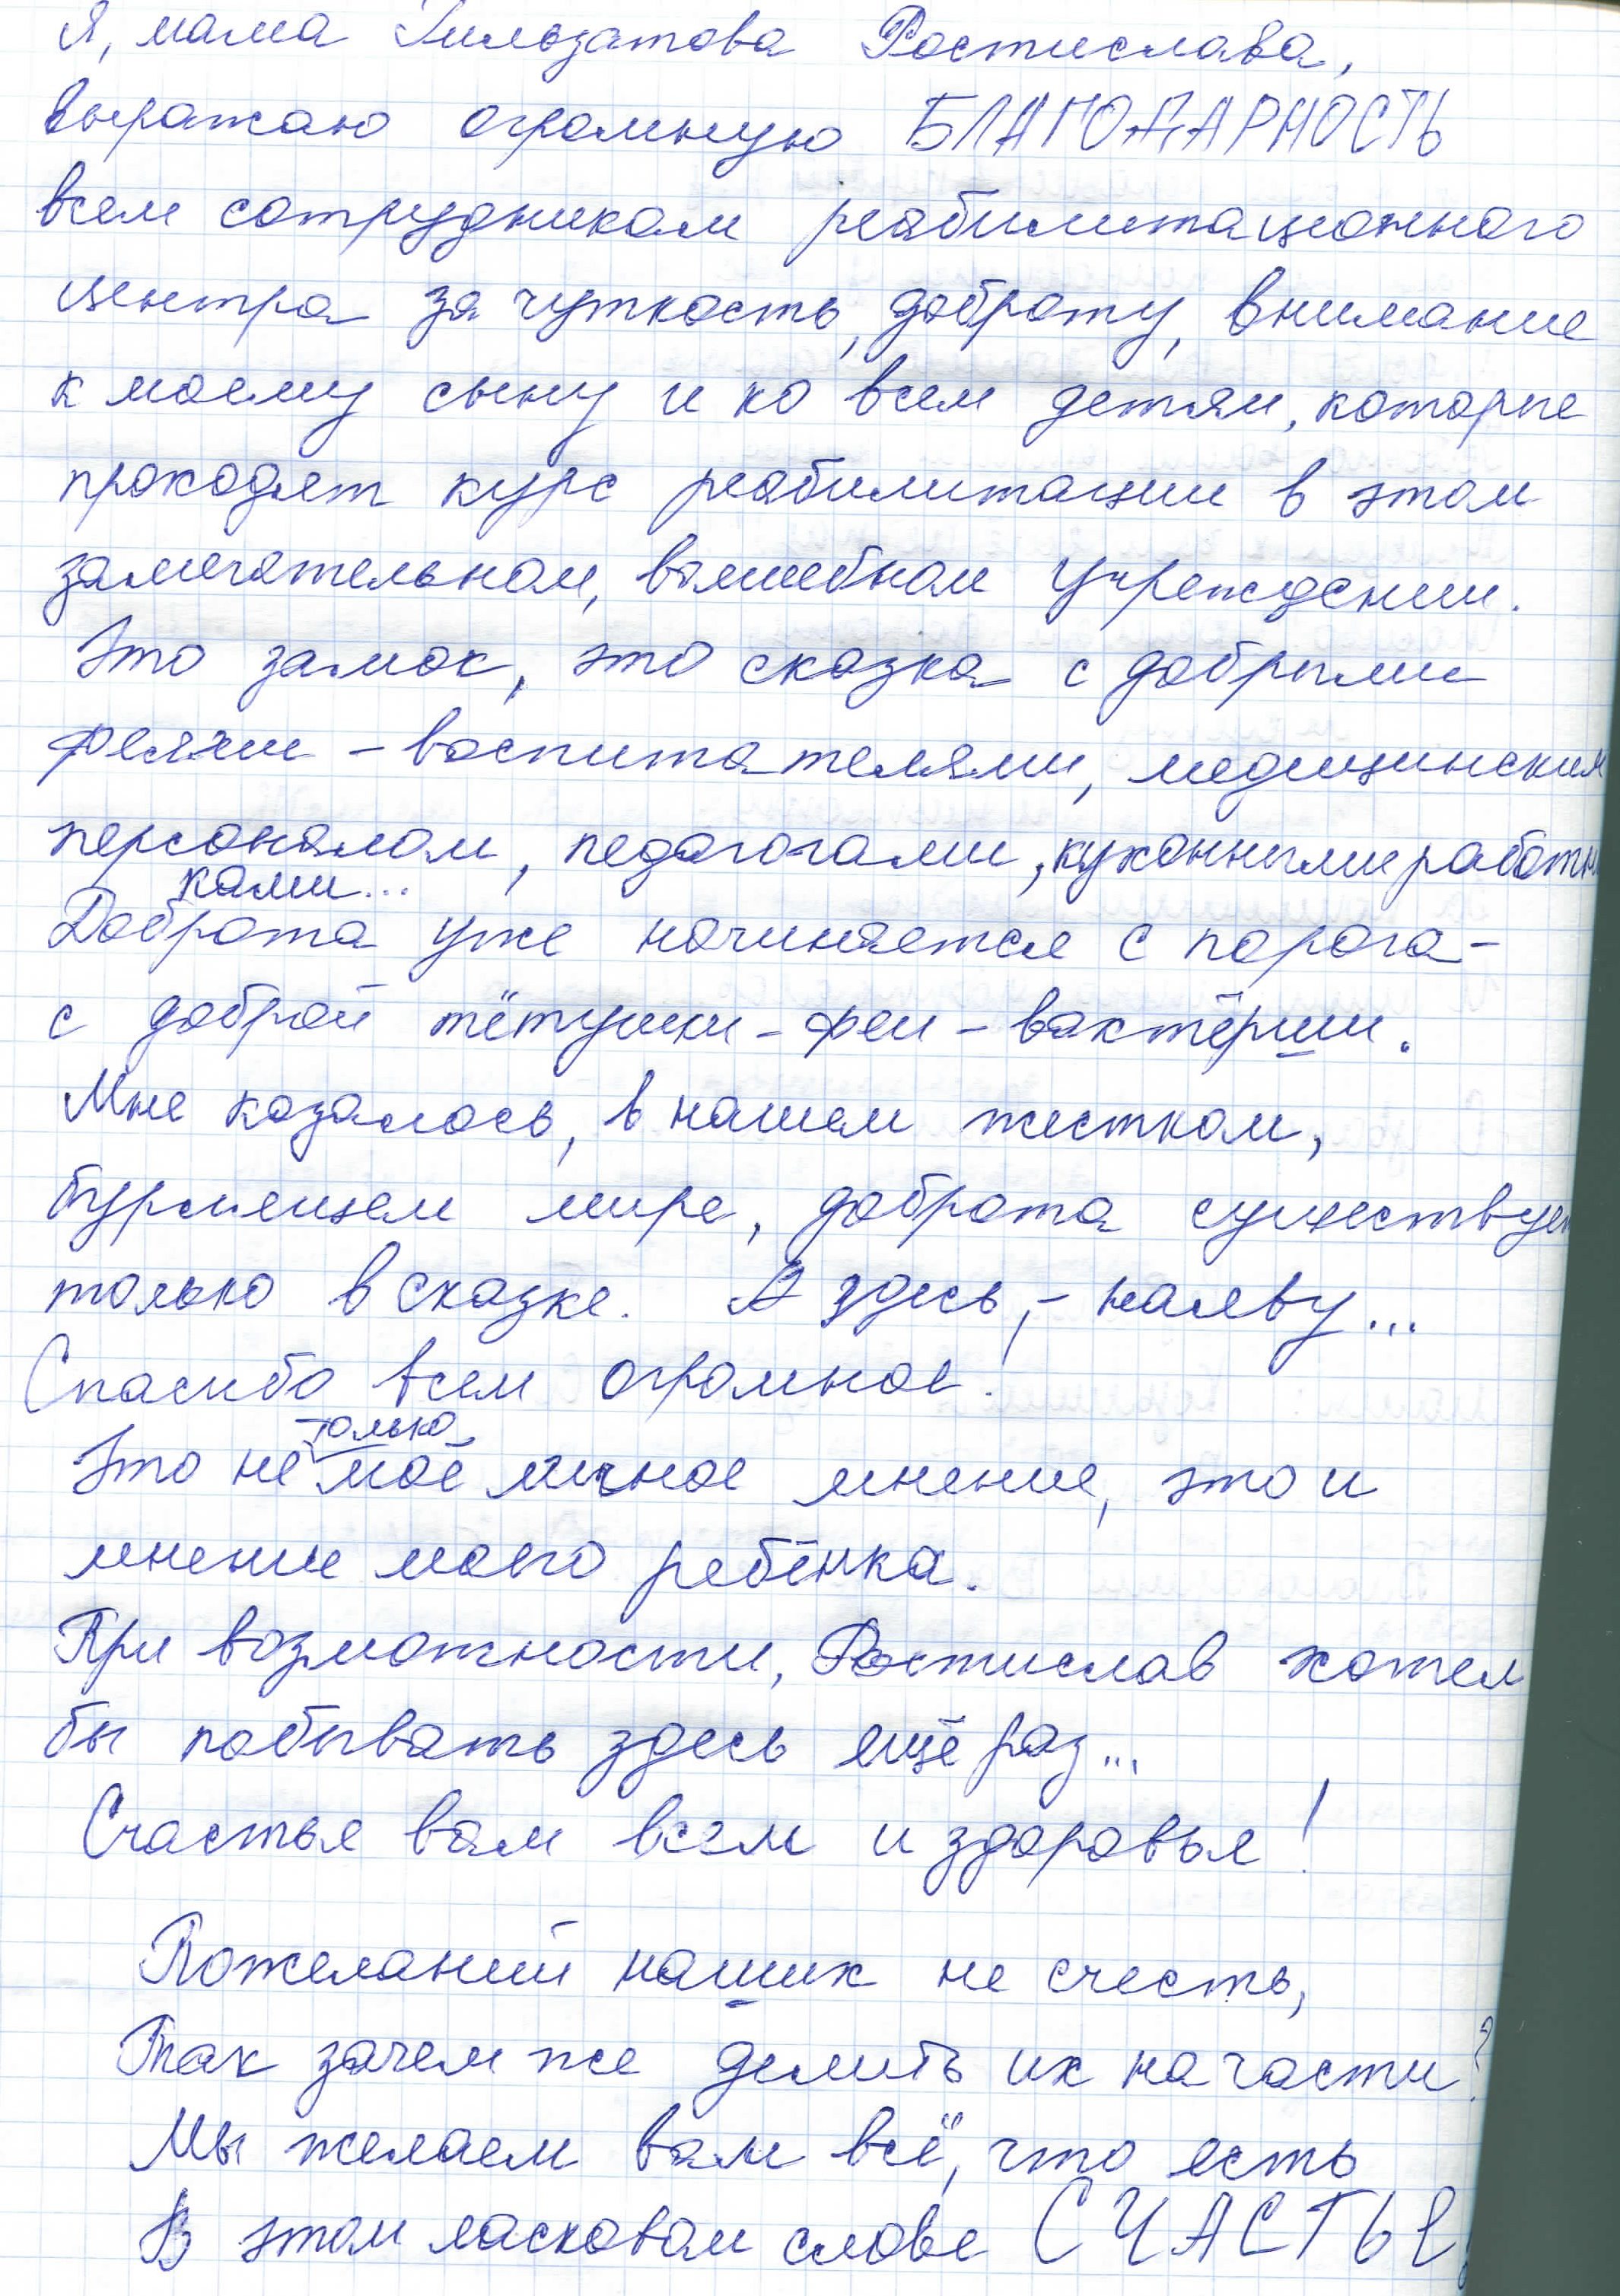 Я, мама Гильзатова Ростислава,
выражаю огромную БЛАГОДАРНОСТЬ
всем сотрудникам реабилитационного
центра за чуткость, доброту, внимание
к моему сыну и ко всем детям, которые
проходят курс реабилитации в этом
замечательном, волшебном учреждении.
Это замок, это сказка с добрыми
феями – воспитателями, медицинским
персоналом, педагогами, кухонными работни
ками...
Доброта уже начинается с порога –
с доброй тётушки – феи – вахтёрши.
Мне казалось, в нашем жестком,
бурлящем мире, доброта существует
только в сказке. А здесь, – наяву...
Спасибо всем огромное!
Это не только моё личное мнение, это и
мнение моего ребёнка.
При возможности, Ростислав хотел
бы побывать здесь ещё раз...
Счастья вам всем и здоровья!
Пожеланий наших не счесть,
Так зачем же делить их на части?
Мы желаем вам всё, что есть
В этом ласковом слове СЧАСТЬЕ!